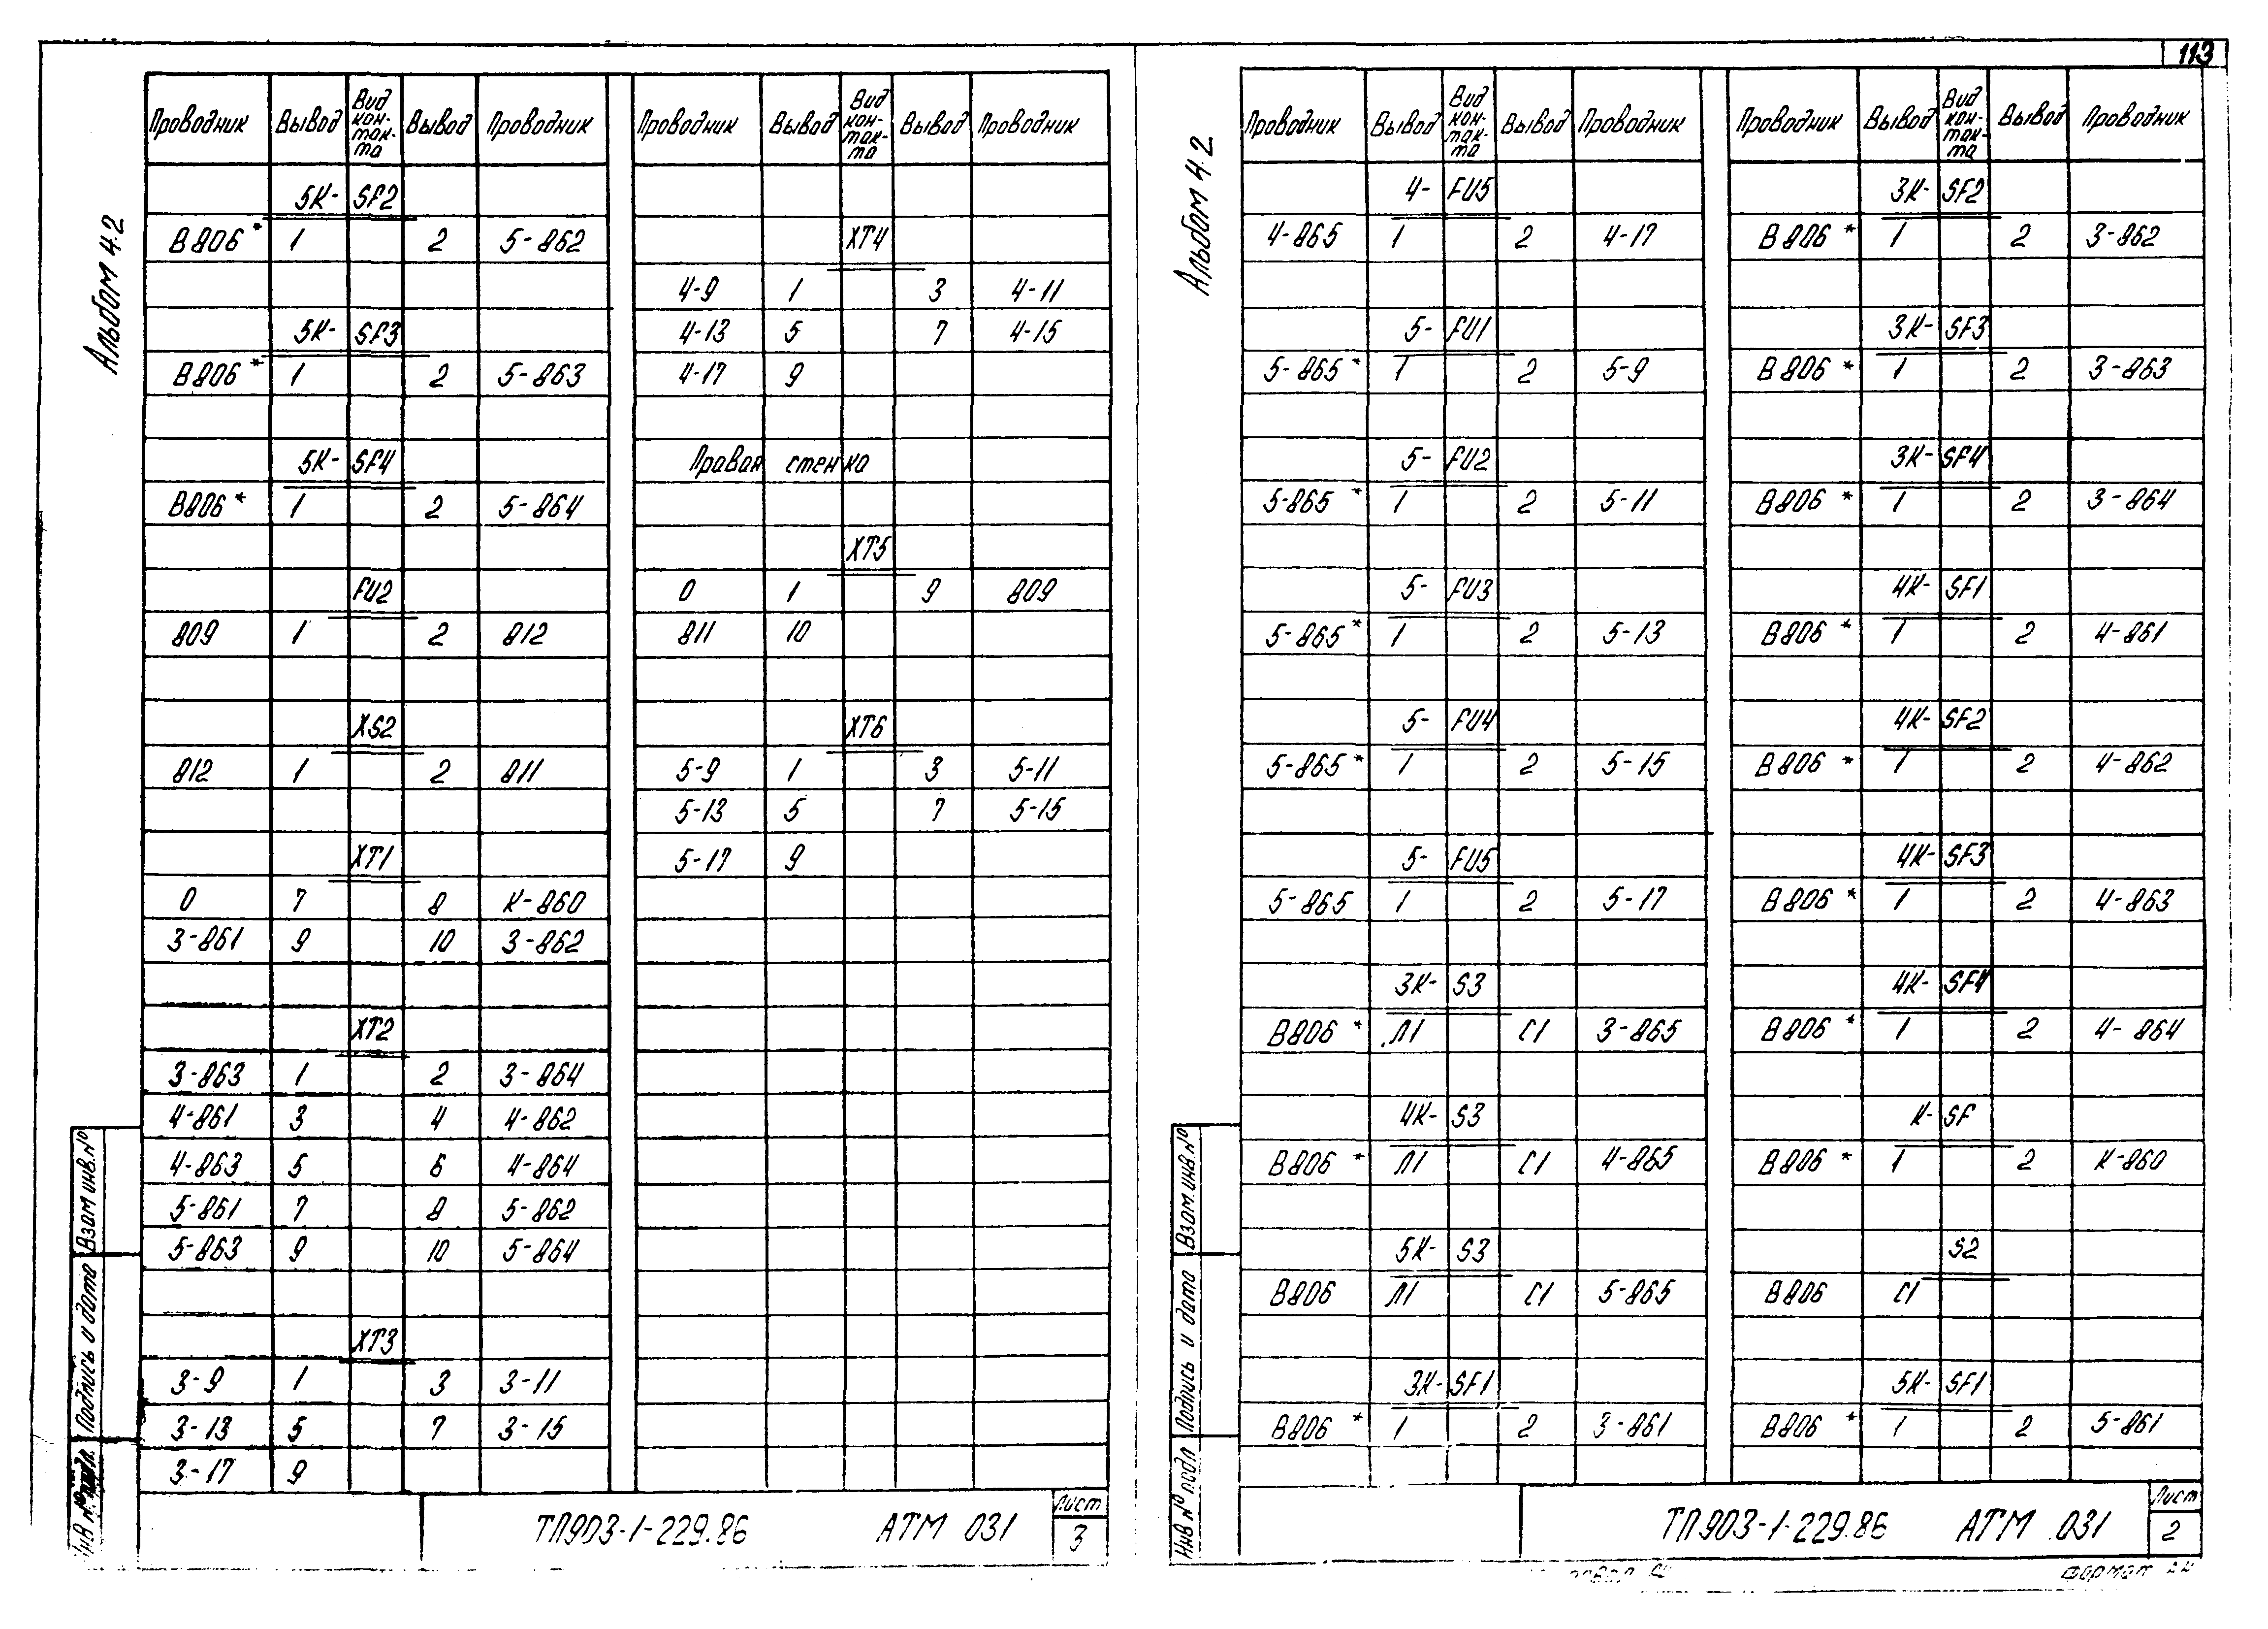 113
Альбом 4.2
Проводник Вывод Вид кон-так-та Вывод Проводник
5К- SF2
В806* 1 2 5-862
5К- SF3
В806* 1 2 5-863
5К- SF4
В806* 1 2 5-864
FU2
809 1 2 812
XS2
812 1 2 811
XT1
0 7 8 К-860
3-861 9 10 3-862
XT2
3-863 1 2 3-864
4-861 3 4 4-862
4-863 5 6 4-864
5-861 7 8 5-862
5-863 9 10 5-864
XT3
3-9 1 3 3-11
3-13 5 7 3-15
3-17 9
Проводник Вывод Вид кон-так-та Вывод Проводник
XT4
4-9 1 3 4-11
4-13 5 7 4-15
4-17 9
Правая стенка
XT5
0 1 9 809
811 10
XT6
5-9 1 3 5-11
5-13 5 7 5-15
5-17 9
Взам инв.№
Подпись и дата
Инв № подл.
ТП903-1-229.86 АТМ 031
Лист
3
Альбом 4.2
Проводник Вывод Вид кон-так-та Вывод Проводник
4- FU5
4-865 1 2 4-17
5- FU1
5-865* 1 2 5-9
5- FU2
5-865* 1 2 5-11
5- FU3
5-865* 1 2 5-13
5- FU4
5-865* 1 2 5-15
5- FU5
5-865 1 2 5-17
3К- S3
В806* Л1 С1 3-865
4К- S3
В806* Л1 С1 4-865
5К- S3
В806 Л1 С1 5-865
3К- SF1
В806* 1 2 3-861
Проводник Вывод Вид кон-так-та Вывод Проводник
3К- SF2
В806* 1 2 3-862
3К- SF3
В806* 1 2 3-863
3К- SF4
В806* 1 2 3-864
4К- SF1
В806* 1 2 4-861
4К- SF2
В806* 1 2 4-862
4К- SF3
В806* 1 2 4-863
4К- SF4
В806* 1 2 4-864
К- SF
В806* 1 2 К-860
S2
В806 С1
5К- SF1
В806* 1 2 5-861
Взам.инв.№
Подпись и дата
Инв № подл
ТП903-1-229.86 АТМ 031
Лист
2
Формат